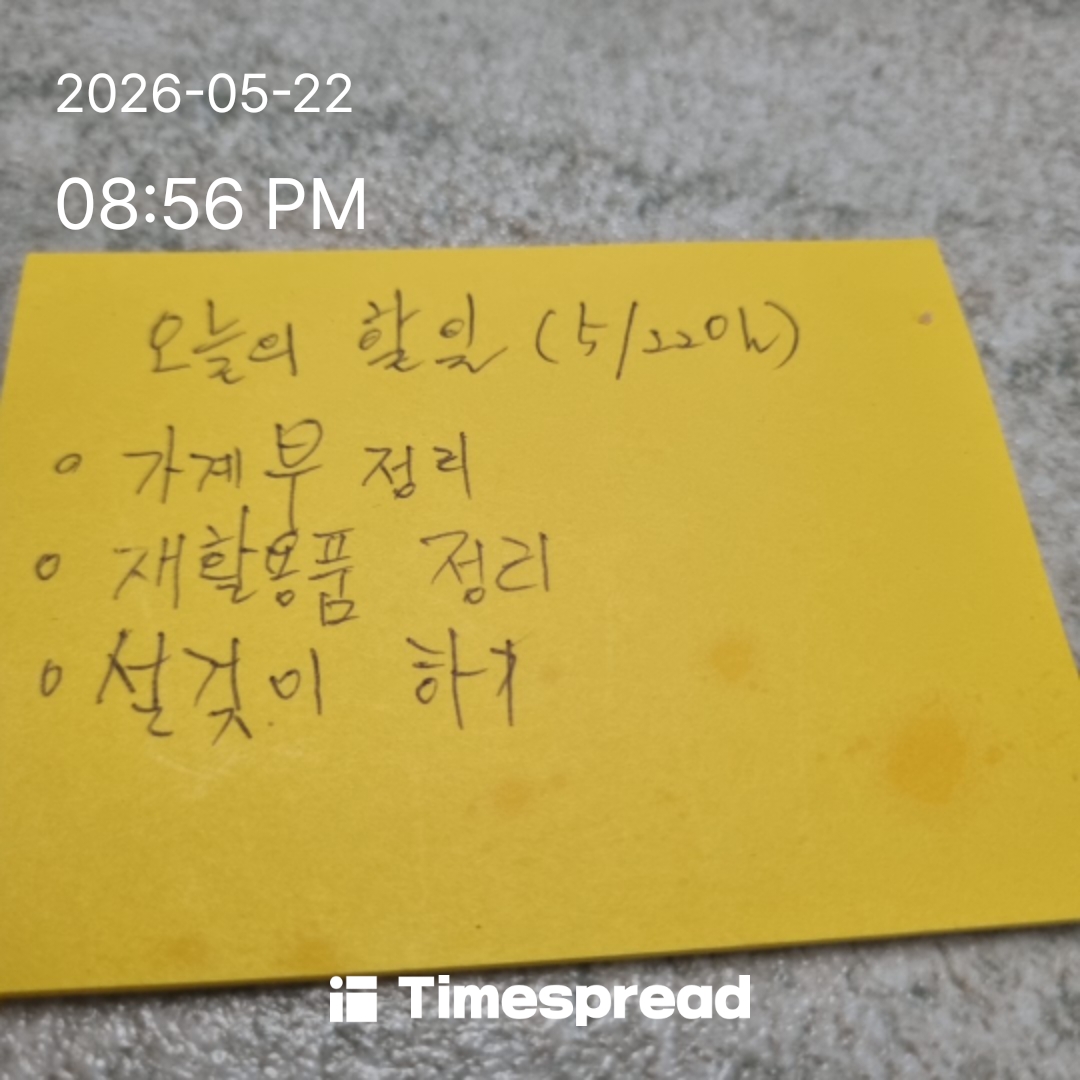 2026-05-22
08:56 PM
오늘의 할일 (5/22일)
o 가계부 정리
o 재활용품 정리
o 설겆이 하기
Timespread